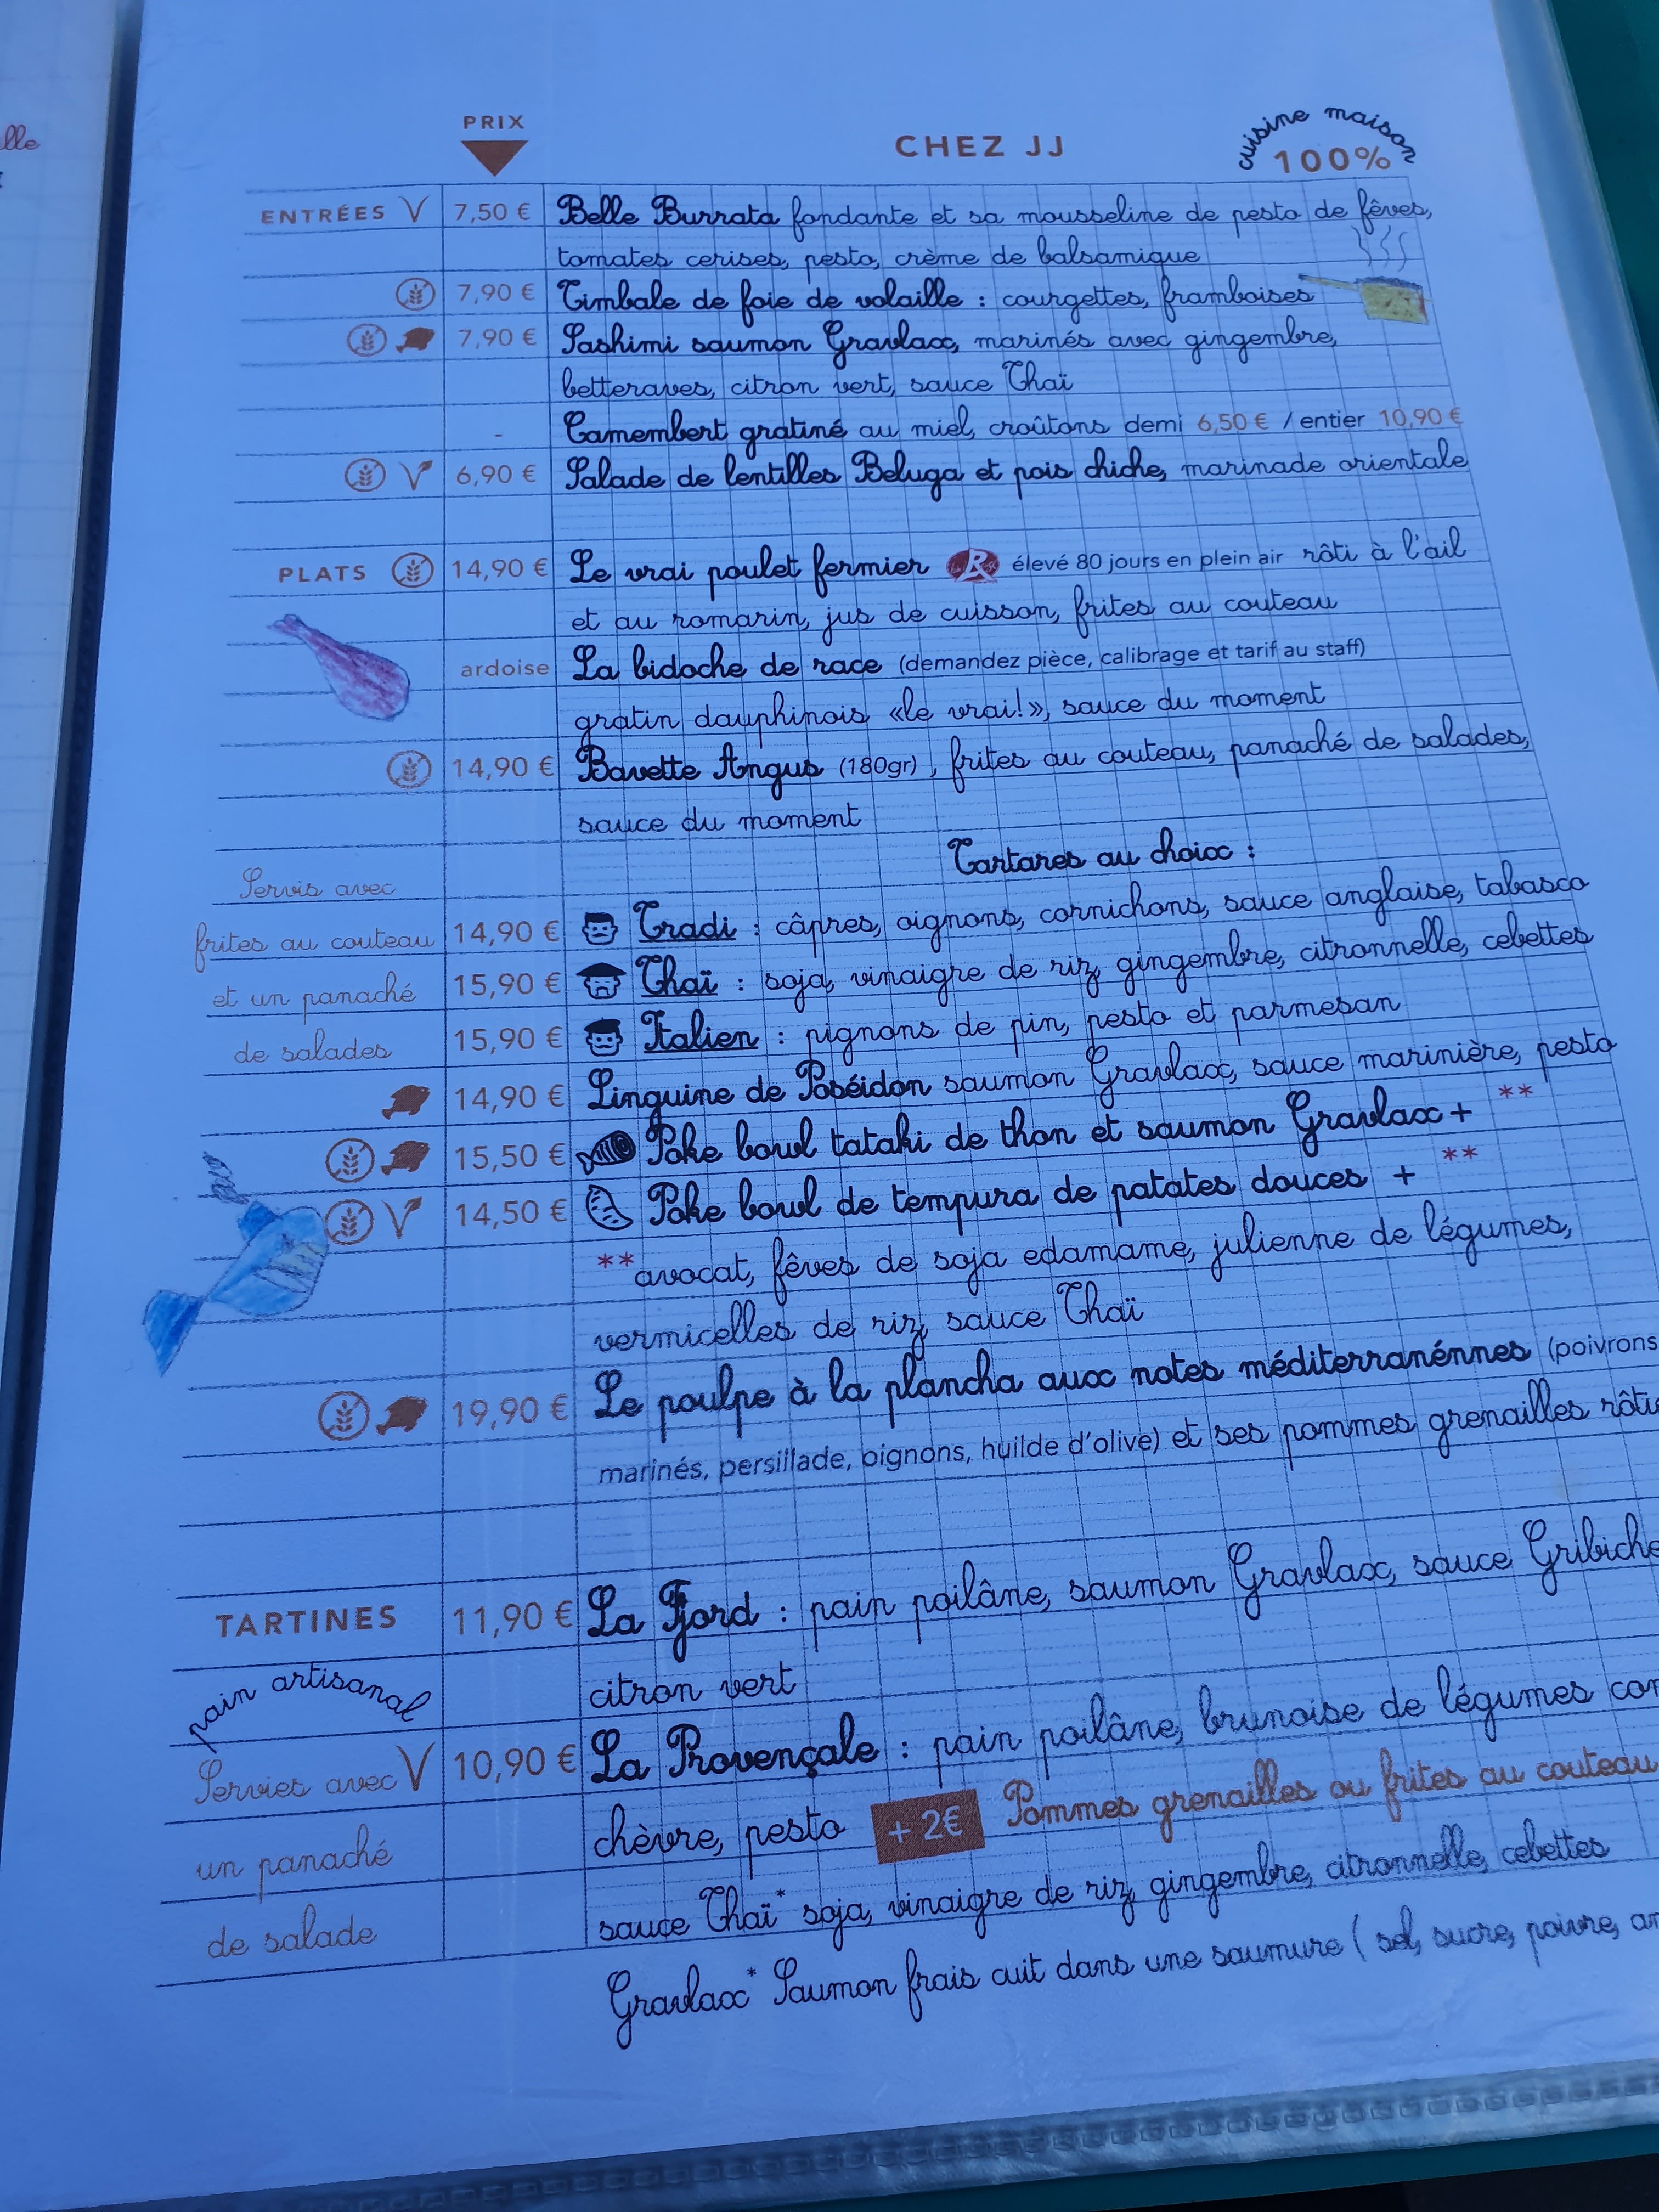 lle
PRIX
CHEZ JJ
cuisine maison
100%
ENTRÉES V 7,50 € Belle Burrata fondante et sa mousseline de pesto de fêves,
tomates cerises, pesto, crème de balsamique
7,90 € Timbale de foie de volaille : courgettes, framboises
7,90 € Sashimi saumon Gravlax, marinés avec gingembre,
betteraves, citron vert, sauce Thaï
- Camembert gratiné au miel, croûtons demi 6,50 € / entier 10,90 €
V 6,90 € Salade de lentilles Beluga et pois chiche, marinade orientale
PLATS 14,90 € Le vrai poulet fermier élevé 80 jours en plein air rôti à l'ail
et au romarin, jus de cuisson, frites au couteau
ardoise La bidoche de race (demandez pièce, calibrage et tarif au staff)
gratin dauphinois «le vrai!», sauce du moment
14,90 € Bavette Angus (180gr), frites au couteau, panaché de salades,
sauce du moment
Tartares au choix :
Servis avec
frites au couteau 14,90 € Tradi : câpres, oignons, cornichons, sauce anglaise, tabasco
et un panaché 15,90 € Thaï : soja, vinaigre de riz, gingembre, citronnelle, cebettes
de salades 15,90 € Italien : pignons de pin, pesto et parmesan
14,90 € Linguine de Poséidon saumon Gravlax, sauce marinière, pesto
15,50 € Poke bowl tataki de thon et saumon Gravlax + **
V 14,50 € Poke bowl de tempura de patates douces + **
**avocat, fêves de soja edamame, julienne de légumes,
vermicelles de riz, sauce Thaï
19,90 € Le poulpe à la plancha aux notes méditerranénnes (poivrons
marinés, persillade, oignons, huilde d'olive) et ses pommes grenailles rôti
TARTINES 11,90 € La Fjord : pain poilâne, saumon Gravlax, sauce Gribiche
pain artisanal citron vert
Servies avec V 10,90 € La Provençale : pain poilâne, brunoise de légumes con
un panaché chèvre, pesto +2€ Pommes grenailles ou frites au couteau
de salade sauce Thaï* soja, vinaigre de riz, gingembre, citronnelle, cebettes
Gravlax* Saumon frais cuit dans une saumure ( sel, sucre, poivre, an